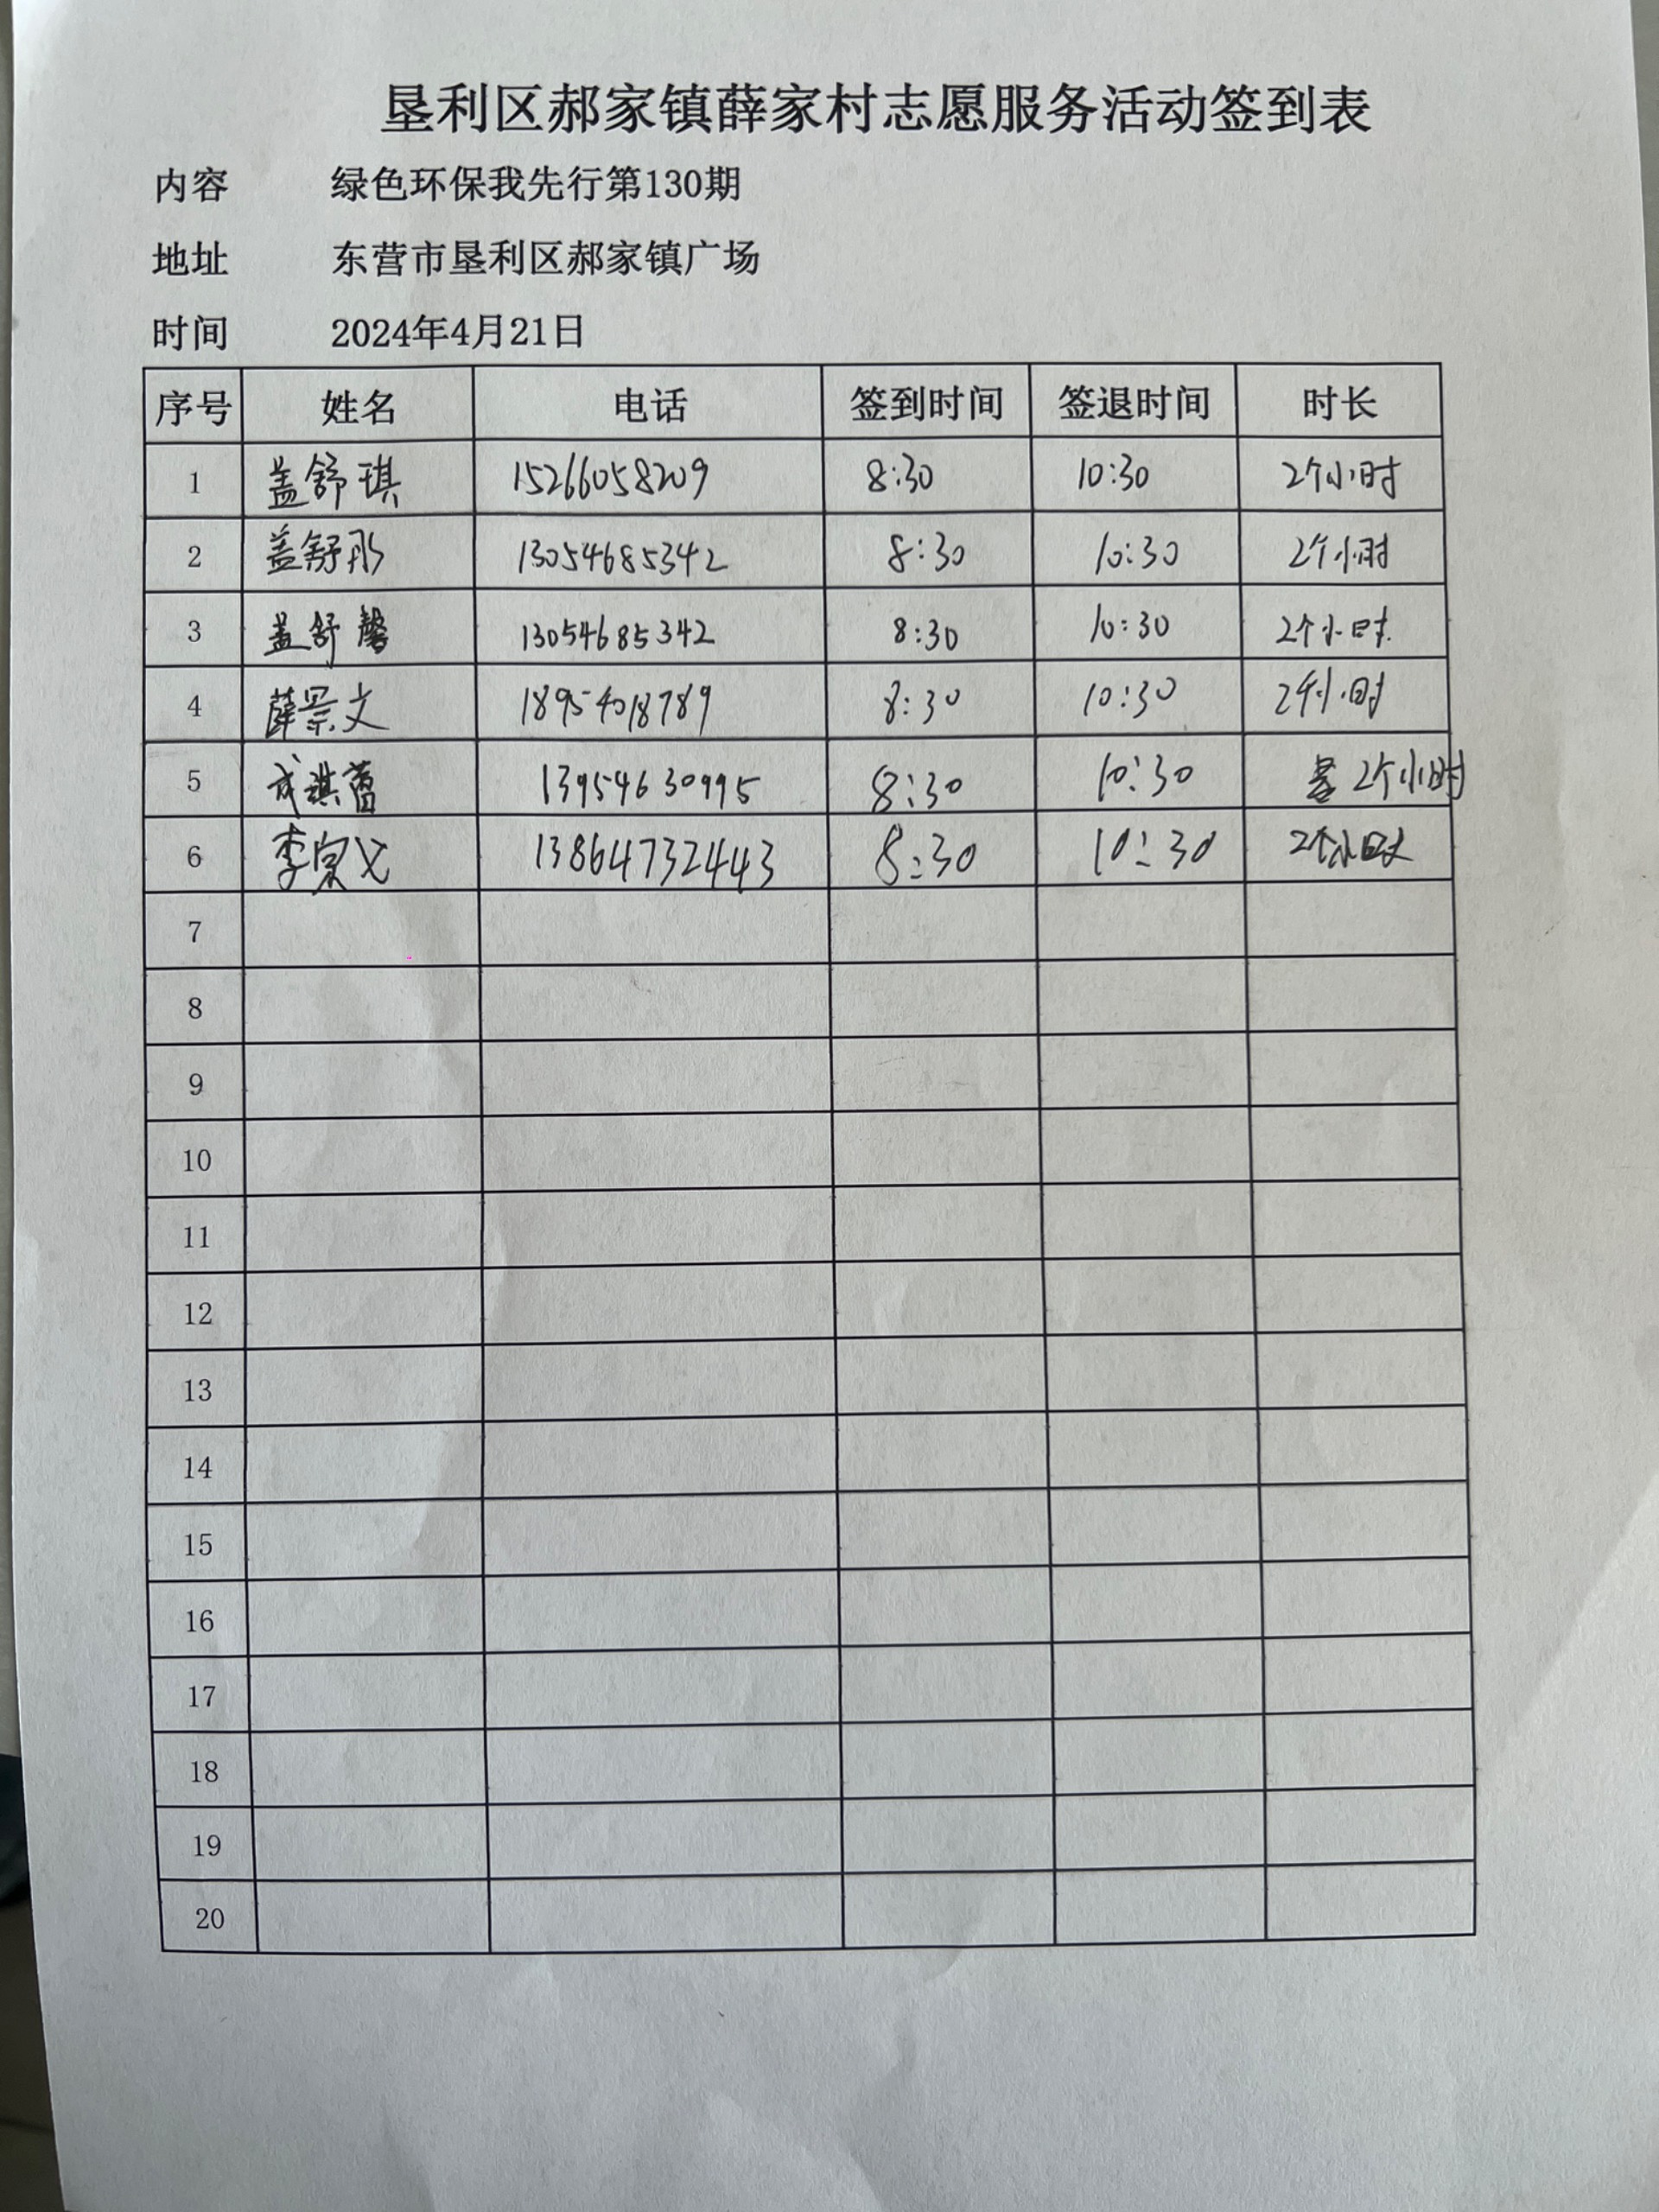 垦利区郝家镇薛家村志愿服务活动签到表
内容 绿色环保我先行第130期
地址 东营市垦利区郝家镇广场
时间 2024年4月21日
序号 姓名 电话 签到时间 签退时间 时长
1 盖舒琪 15266058209 8:30 10:30 2个小时
2 盖舒彤 13054685342 8:30 10:30 2个小时
3 盖舒馨 13054685342 8:30 10:30 2个小时
4 薛景文 18954018789 8:30 10:30 2个小时
5 成淇蕾 13954630995 8:30 10:30 2个小时
6 李 13864732443 8:30 10:30 2个小时
7
8
9
10
11
12
13
14
15
16
17
18
19
20